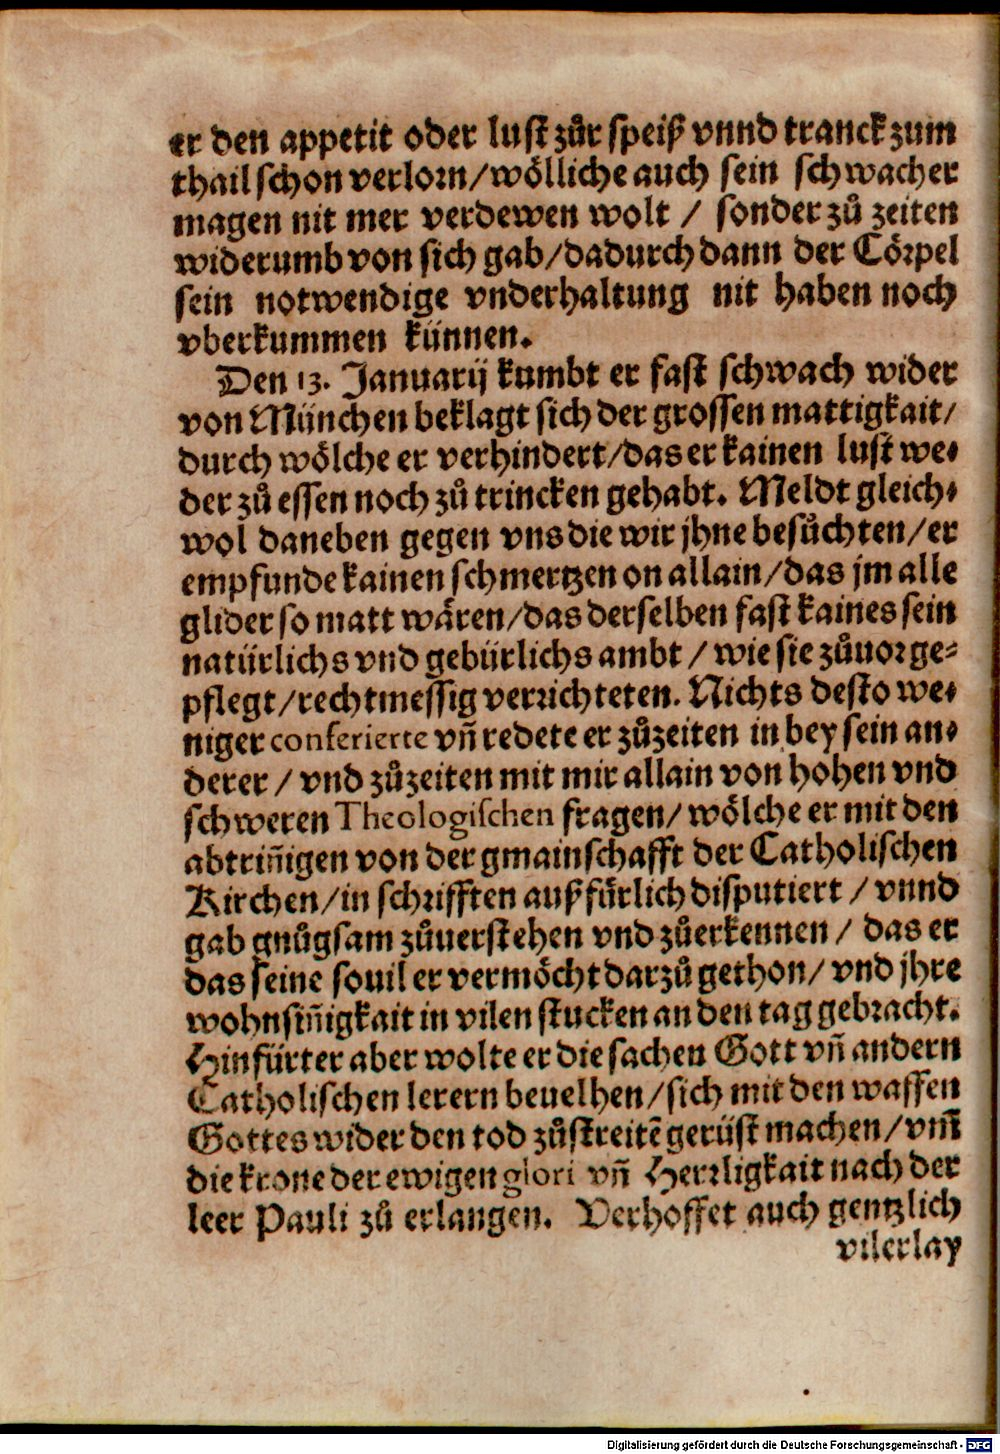 er den appetit oder lust zůr speiß vnnd tranck zum
thail schon verlorn/wölliche auch sein schwacher
magen nit mer verdewen wolt / sonder zů zeiten
widerumb von sich gab/dadurch dann der Cörpel
sein notwendige vnderhaltung nit haben noch
vberkummen künnen.
Den 13. Januarij kumbt er fast schwach wider
von München beklagt sich der grossen mattigkait/
durch wölche er verhindert/das er kainen lust we-
der zů essen noch zů trincken gehabt. Meldt gleich-
wol daneben gegen vns die wir jhne besůchten/er
empfunde kainen schmertzen on allain/das jm alle
glider so matt wären/das derselben fast kaines sein
natürlichs vnd gebürlichs ambt / wie sie zůuor ge-
pflegt/rechtmessig verrichteten. Nichts desto we-
niger conferierte vñ redete er zůzeiten in bey sein an-
derer / vnd zůzeiten mit mir allain von hohen vnd
schweren Theologischen fragen/ wölche er mit den
abtriñigen von der gmainschafft der Catholischen
Kirchen/in schrifften außfürlich disputiert / vnnd
gab gnůgsam zůuerstehen vnd zůerkennen / das er
das seine souil er vermöcht darzů gethon/ vnd jhre
wohnsiñigkait in vilen stucken an den tag gebracht.
Hinfürter aber wolte er die sachen Gott vñ andern
Catholischen lerern beuelhen/sich mit den waffen
Gottes wider den tod zůstreitē gerüst machen/vm̄
die krone der ewigen glori vñ Herrligkait nach der
leer Pauli zů erlangen. Verhoffet auch gentzlich
vilerlay
Digitalisierung gefördert durch die Deutsche Forschungsgemeinschaft - DFG